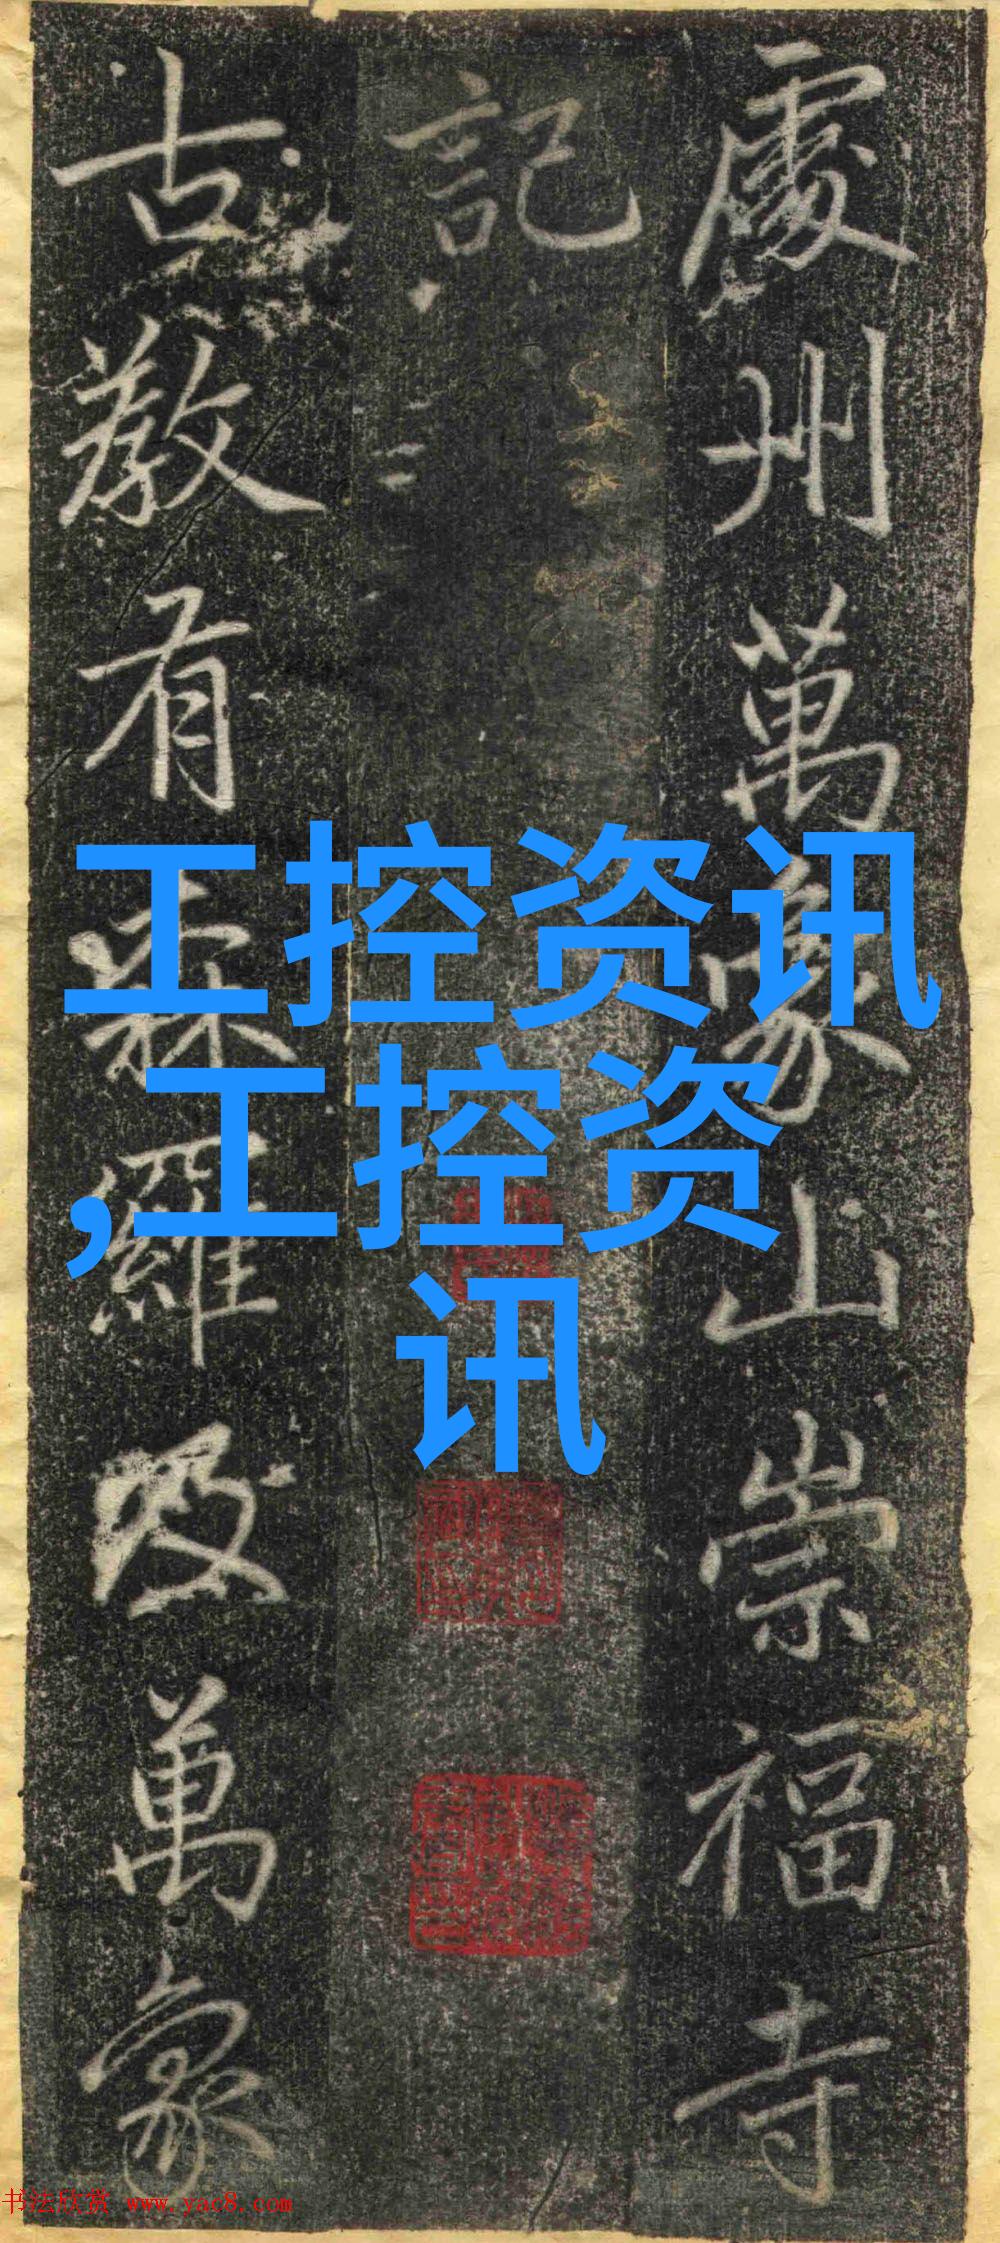 處州萬象山崇福寺
記
古教有森羅及萬象
工控资讯
,工控资
讯
书法欣赏 www.yac8.com